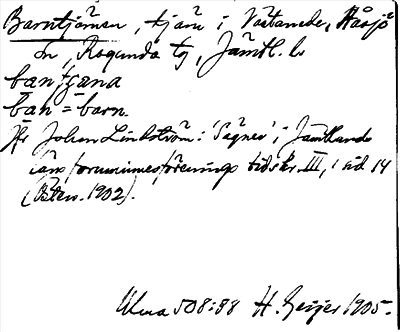 Barntjärnen, tjärn i Västanede, Håsjö
sn, Ragunda tg, Jämtl. l.
bantjäṉa
ban = barn.
Av Johan Lindström: 'Sägner' i Jämtlands
läns fornminnesförenings tidskr. III, sid 14
(Östers. 1902).
508:88 H. Geijer 1905.